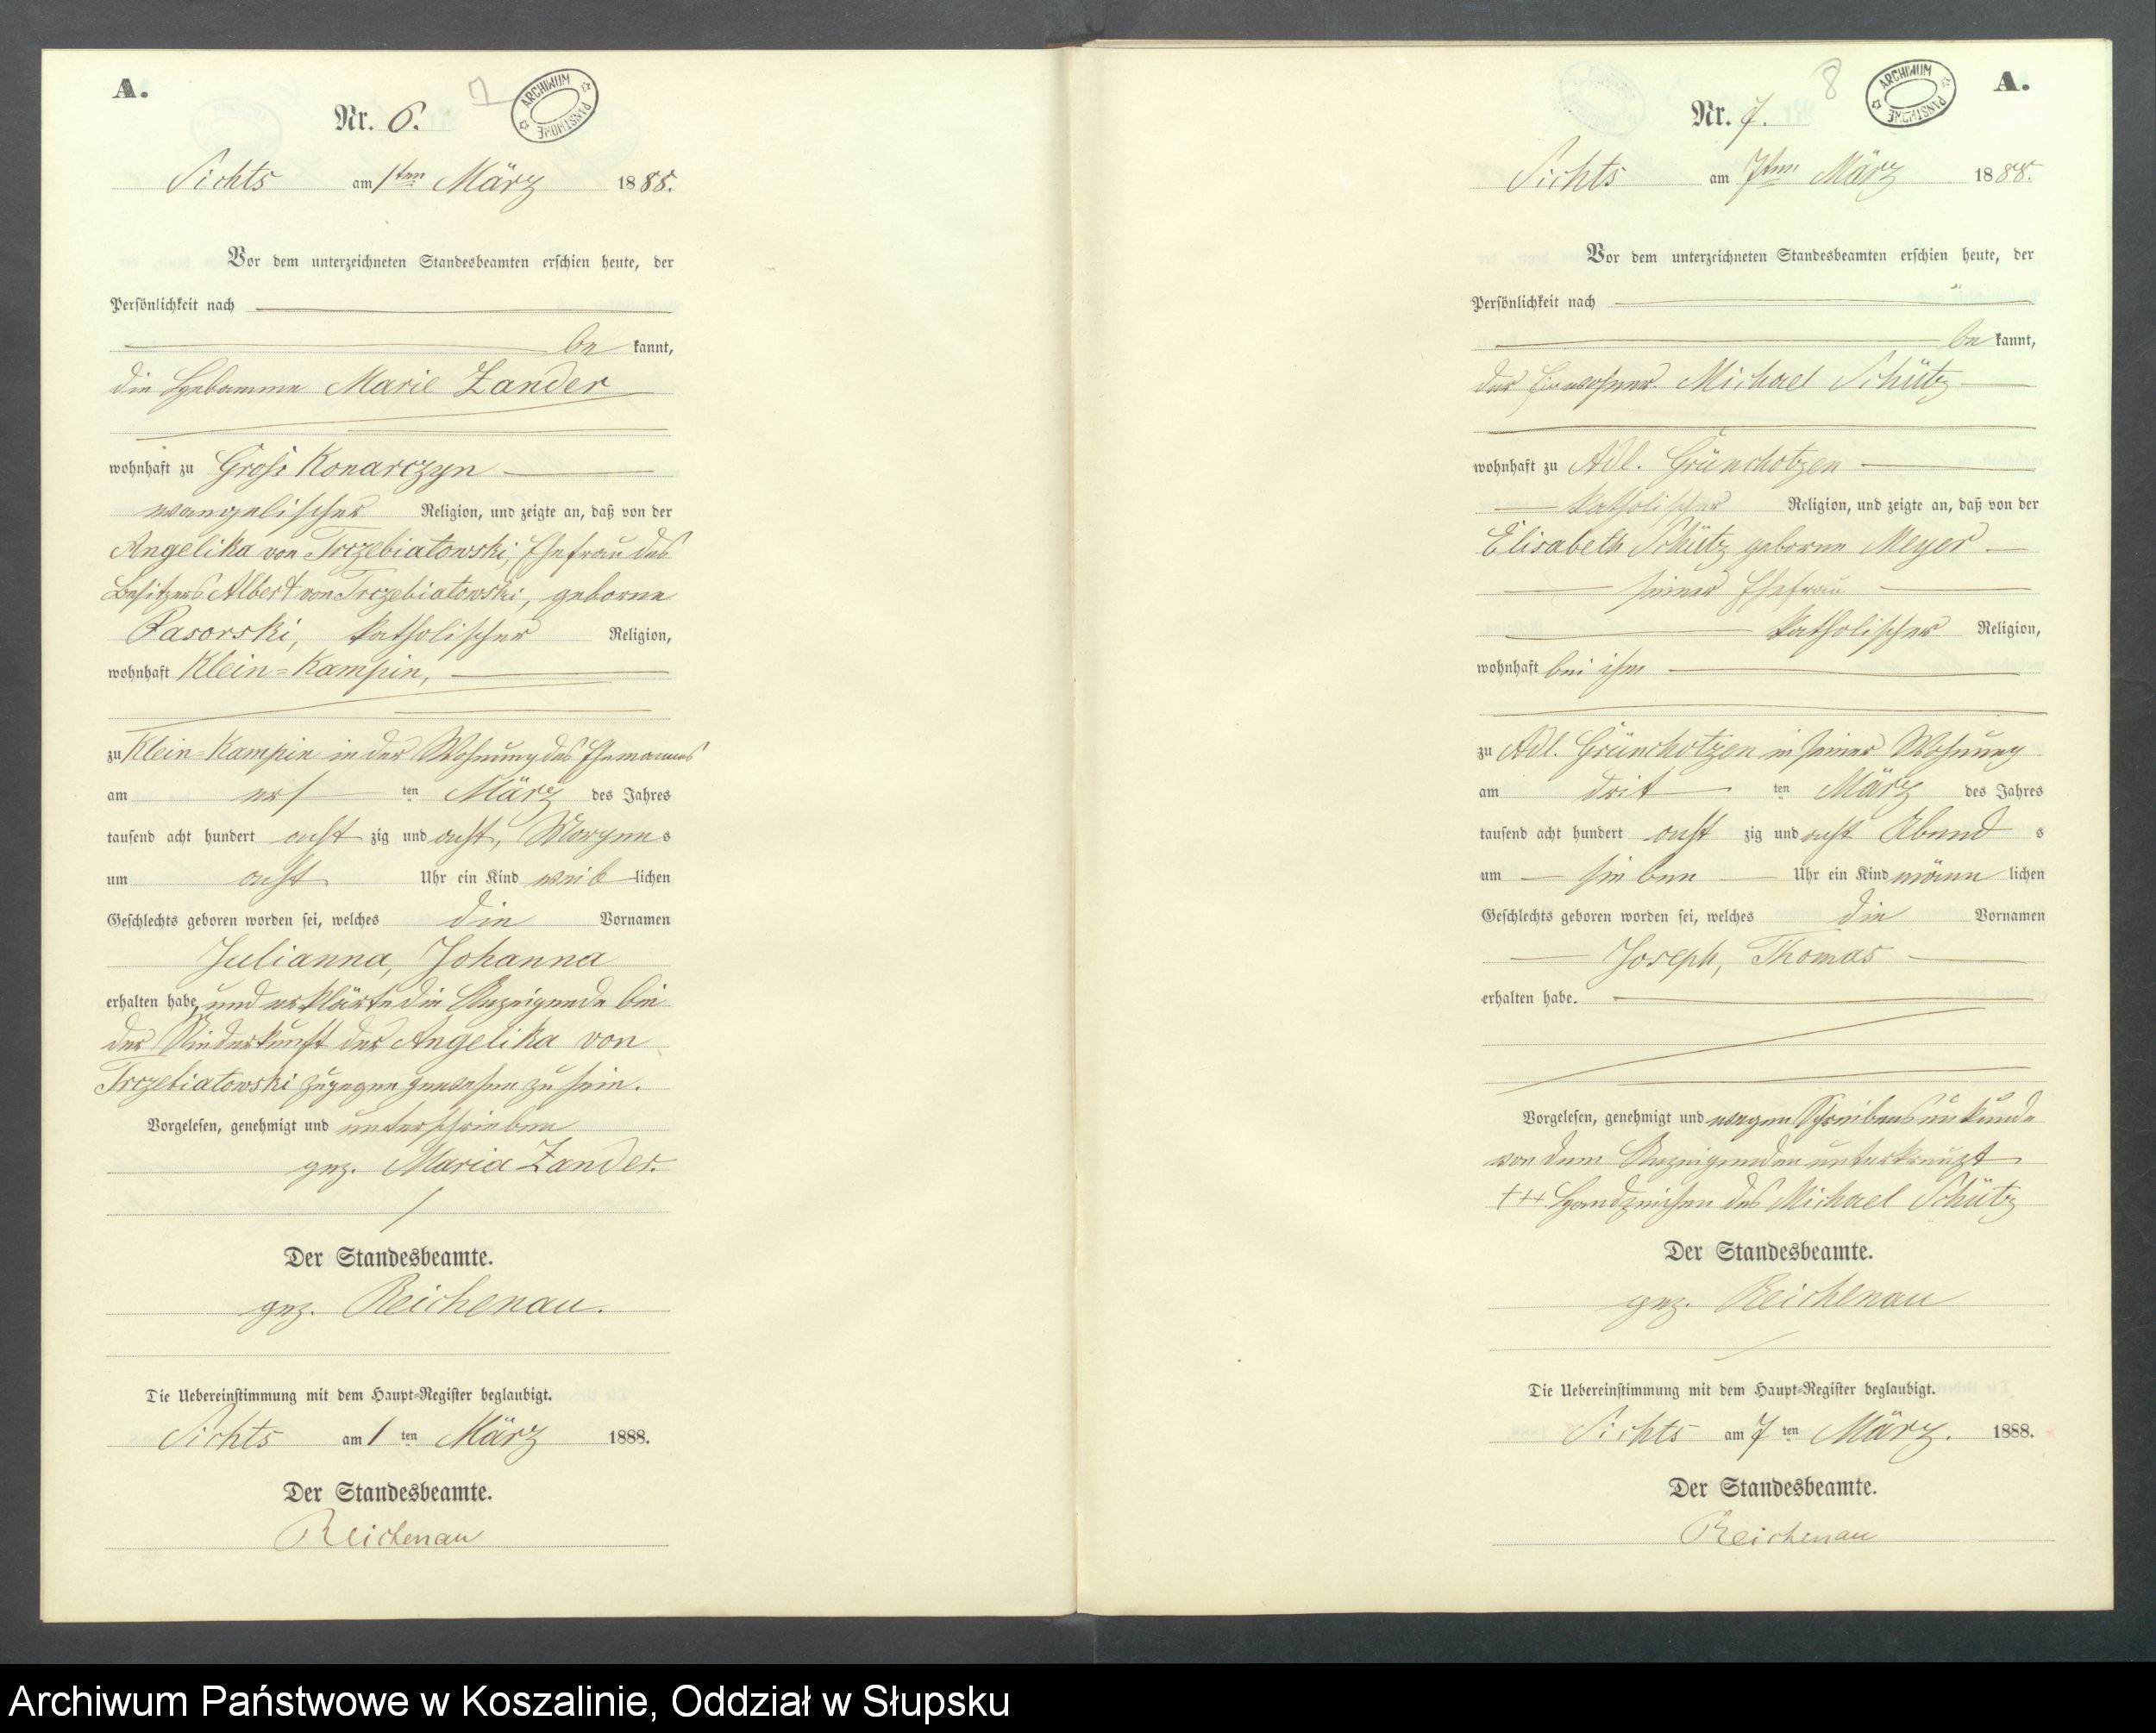 A.
7
ARCHIWUM PAŃSTWOWE
Nr. 6.
Sichts am 1ten März 1888.
Vor dem unterzeichneten Standesbeamten erschien heute, der
Persönlichkeit nach
be kannt,
die Hebamme Marie Zander
wohnhaft zu Gross Konarczyn
evangelischer Religion, und zeigte an, daß von der
Angelika von Trzebiatowski, Ehefrau des
Besitzers Albert von Trzebiatowski, geborne
Pasorski, katholischer Religion,
wohnhaft Klein=Kampin,
zu Klein=Kampin in der Wohnung des Ehemannes
am ers ten März des Jahres
tausend acht hundert acht zig und acht, Morgens
um acht Uhr ein Kind weib lichen
Geschlechts geboren worden sei, welches die Vornamen
Julianna, Johanna
erhalten habe, und erklärte die Anzeigende bei
der Niederkunft der Angelika von
Trzebiatowski zugegen gewesen zu sein.
Vorgelesen, genehmigt und unterschrieben
gez. Maria Zander.
Der Standesbeamte.
gez. Reichenau.
Die Uebereinstimmung mit dem Haupt-Register beglaubigt.
Sichts am 1 ten März 1888.
Der Standesbeamte.
Reichenau
8
ARCHIWUM PAŃSTWOWE
A.
Nr. 7.
Sichts am 7ten März 1888.
Vor dem unterzeichneten Standesbeamten erschien heute, der
Persönlichkeit nach
be kannt,
der Einwohner Michael Schütz
wohnhaft zu Adl. Grünchotzen
katholischer Religion, und zeigte an, daß von der
Elisabeth Schütz geborne Meyer
seiner Ehefrau
katholischer Religion,
wohnhaft bei ihm
zu Adl. Grünchotzen in seiner Wohnung
am drit ten März des Jahres
tausend acht hundert acht zig und acht Abend s
um sieben Uhr ein Kind männ lichen
Geschlechts geboren worden sei, welches die Vornamen
Joseph, Thomas
erhalten habe.
Vorgelesen, genehmigt und wegen Schreibensunkunde
von dem Anzeigenden unterkreuzt
+++ Handzeichen des Michael Schütz
Der Standesbeamte.
gez. Reichenau
Die Uebereinstimmung mit dem Haupt-Register beglaubigt.
Sichts am 7 ten März. 1888.
Der Standesbeamte.
Reichenau
Archiwum Państwowe w Koszalinie, Oddział w Słupsku